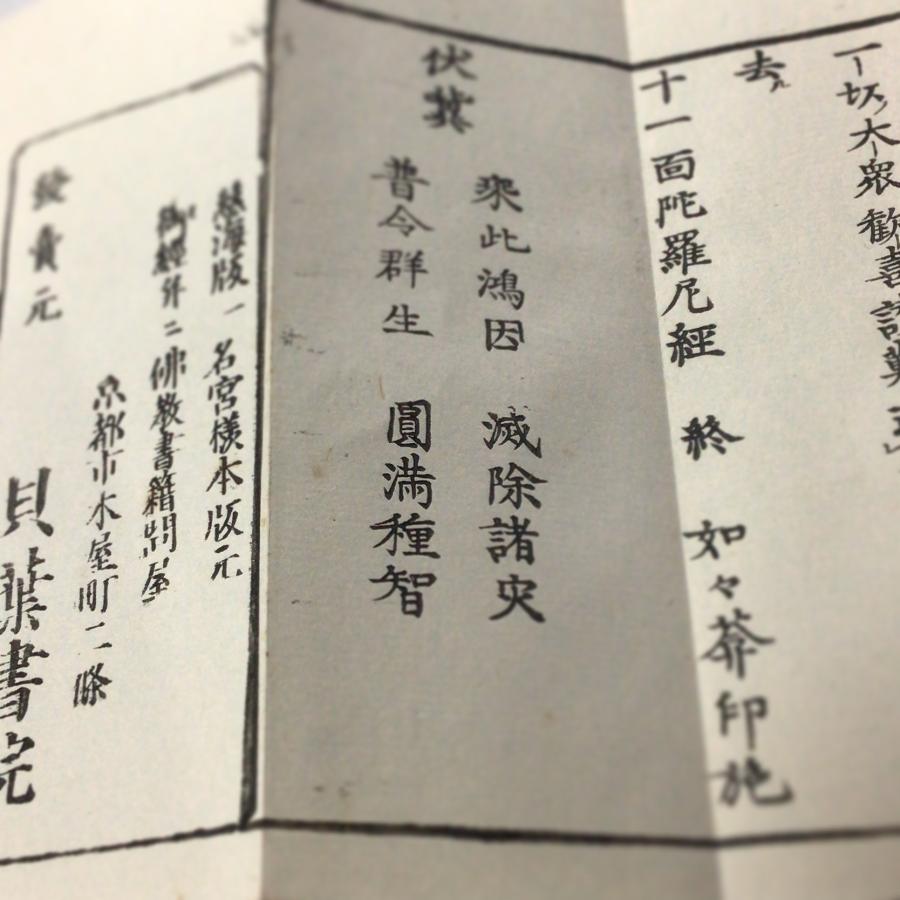 一切大衆歓喜
去
十一面陀羅尼經 終 如々莾印施
伏冀
乘此鴻因 滅除諸灾
普令群生 圓満種智
海版一名宮様本版元
御經并ニ佛教書籍問屋
京都市木屋町二條
發賣元 貝葉書院